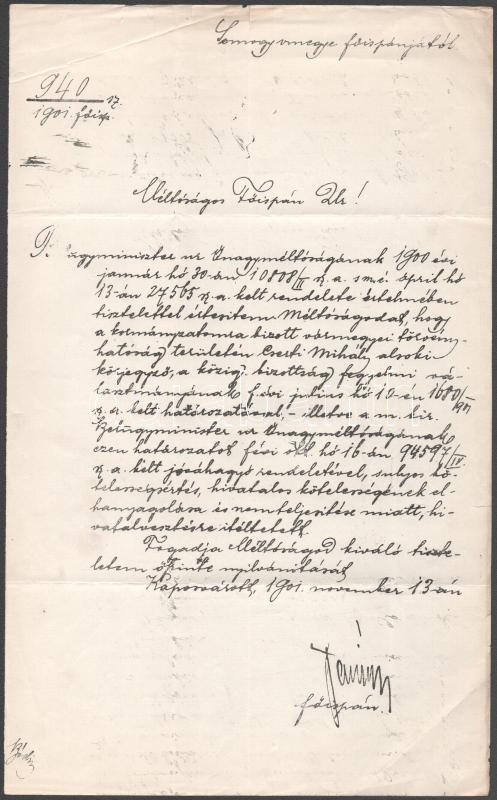 Somogy vmegye főispánjától
940 sz.
1901. főisp.
Méltóságos Főispán Úr!
Belügyminiszter ur Őnagyméltóságának 1900 évi
január hó 30-án 10808/II sz. a. s m. é. április hó
13-án 27565 sz. a. kelt rendelete értelmében
tisztelettel értesitem Méltóságodat, hogy
a kormányzatomra bizott vármegyei törvény-
hatóság területén Cserti Mihály alsoki
körjegyző, a közig. bizottság fegyelmi vá-
lasztmányának f. évi julius hó 10-én 1680/901
sz. a. kelt határozatával, – illetve a m. kir.
Belügyminister ur Őnagyméltóságának
ezen határozatot f. évi okt. hó 16-án 94597/IV
sz. a. kelt jóváhagyó rendeletével, sulyos kö-
telességsértés, hivatalos kötelességének el-
hanyagolása és nemteljesitése miatt, hi-
vatalvesztésre itéltetett.
Fogadja Méltóságod kiváló tiszte-
letem őszinte nyilvánitását
Kaposvárott, 1901. november 13-án
főispán.